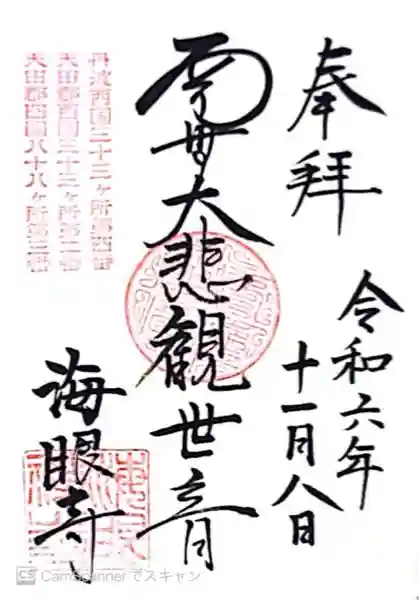 奉拝
令和六年
十一月八日
南無大悲観世音
海眼寺
丹波西国三十三ヶ所第四番
天田郡西国三十三ヶ所第二番
天田郡四国八十八ヶ所第三番
CS CamScanner でスキャン